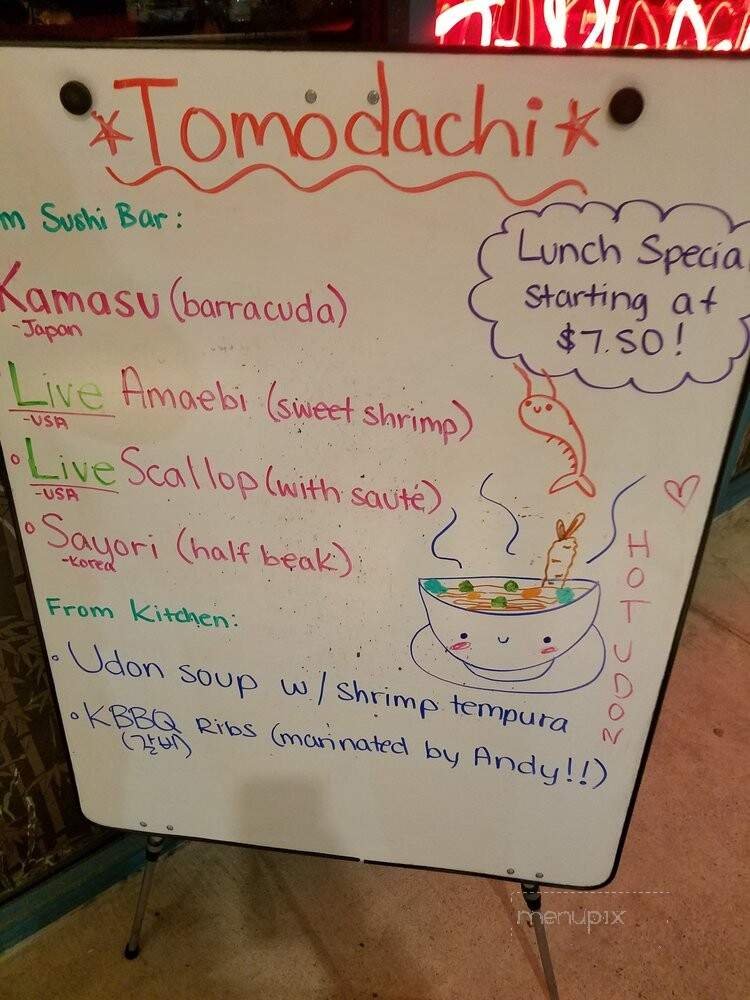 Tomodachi
m Sushi Bar:
Lunch Special
starting at
$7.50!
Kamasu (barracuda)
-Japan
Live Amaebi (sweet shrimp)
-USA
Live Scallop (with sauté)
-USA
Sayori (half beak)
-Korea
HOT UDON
From Kitchen:
Udon soup w/ shrimp tempura
KBBQ Ribs (marinated by Andy!!)
(갈비)
menupix